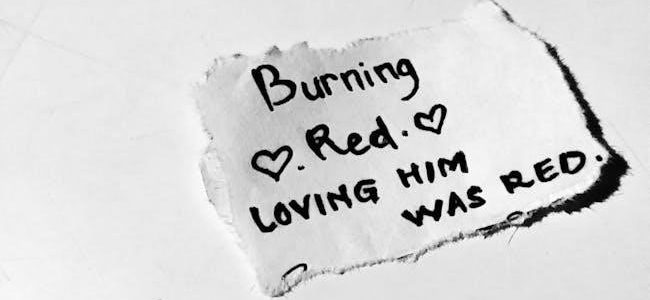 Burning
♡. Red. ♡
LOVING HIM
WAS RED.